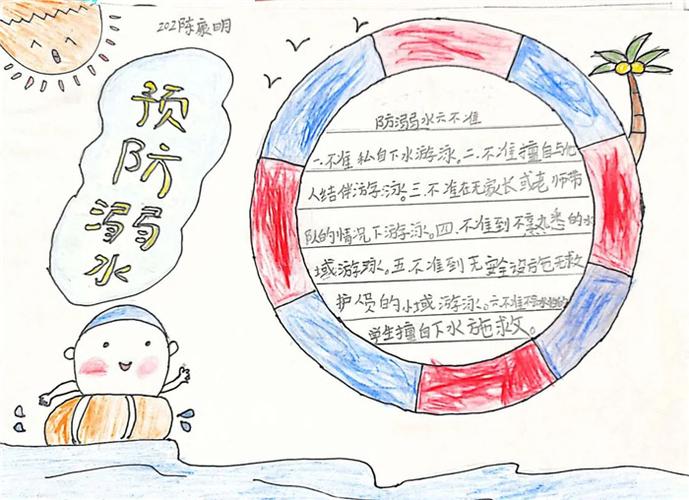 202陈康明
预防溺水
防溺水六不准
一.不准私自下水游泳。二.不准擅自与他
人结伴游泳。三.不准在无家长或老师带
队的情况下游泳。四.不准到不熟悉的水
域游泳。五.不准到无安全设 无救
护员的水域游泳。六.不准不会水性的
学生擅自下水施救。